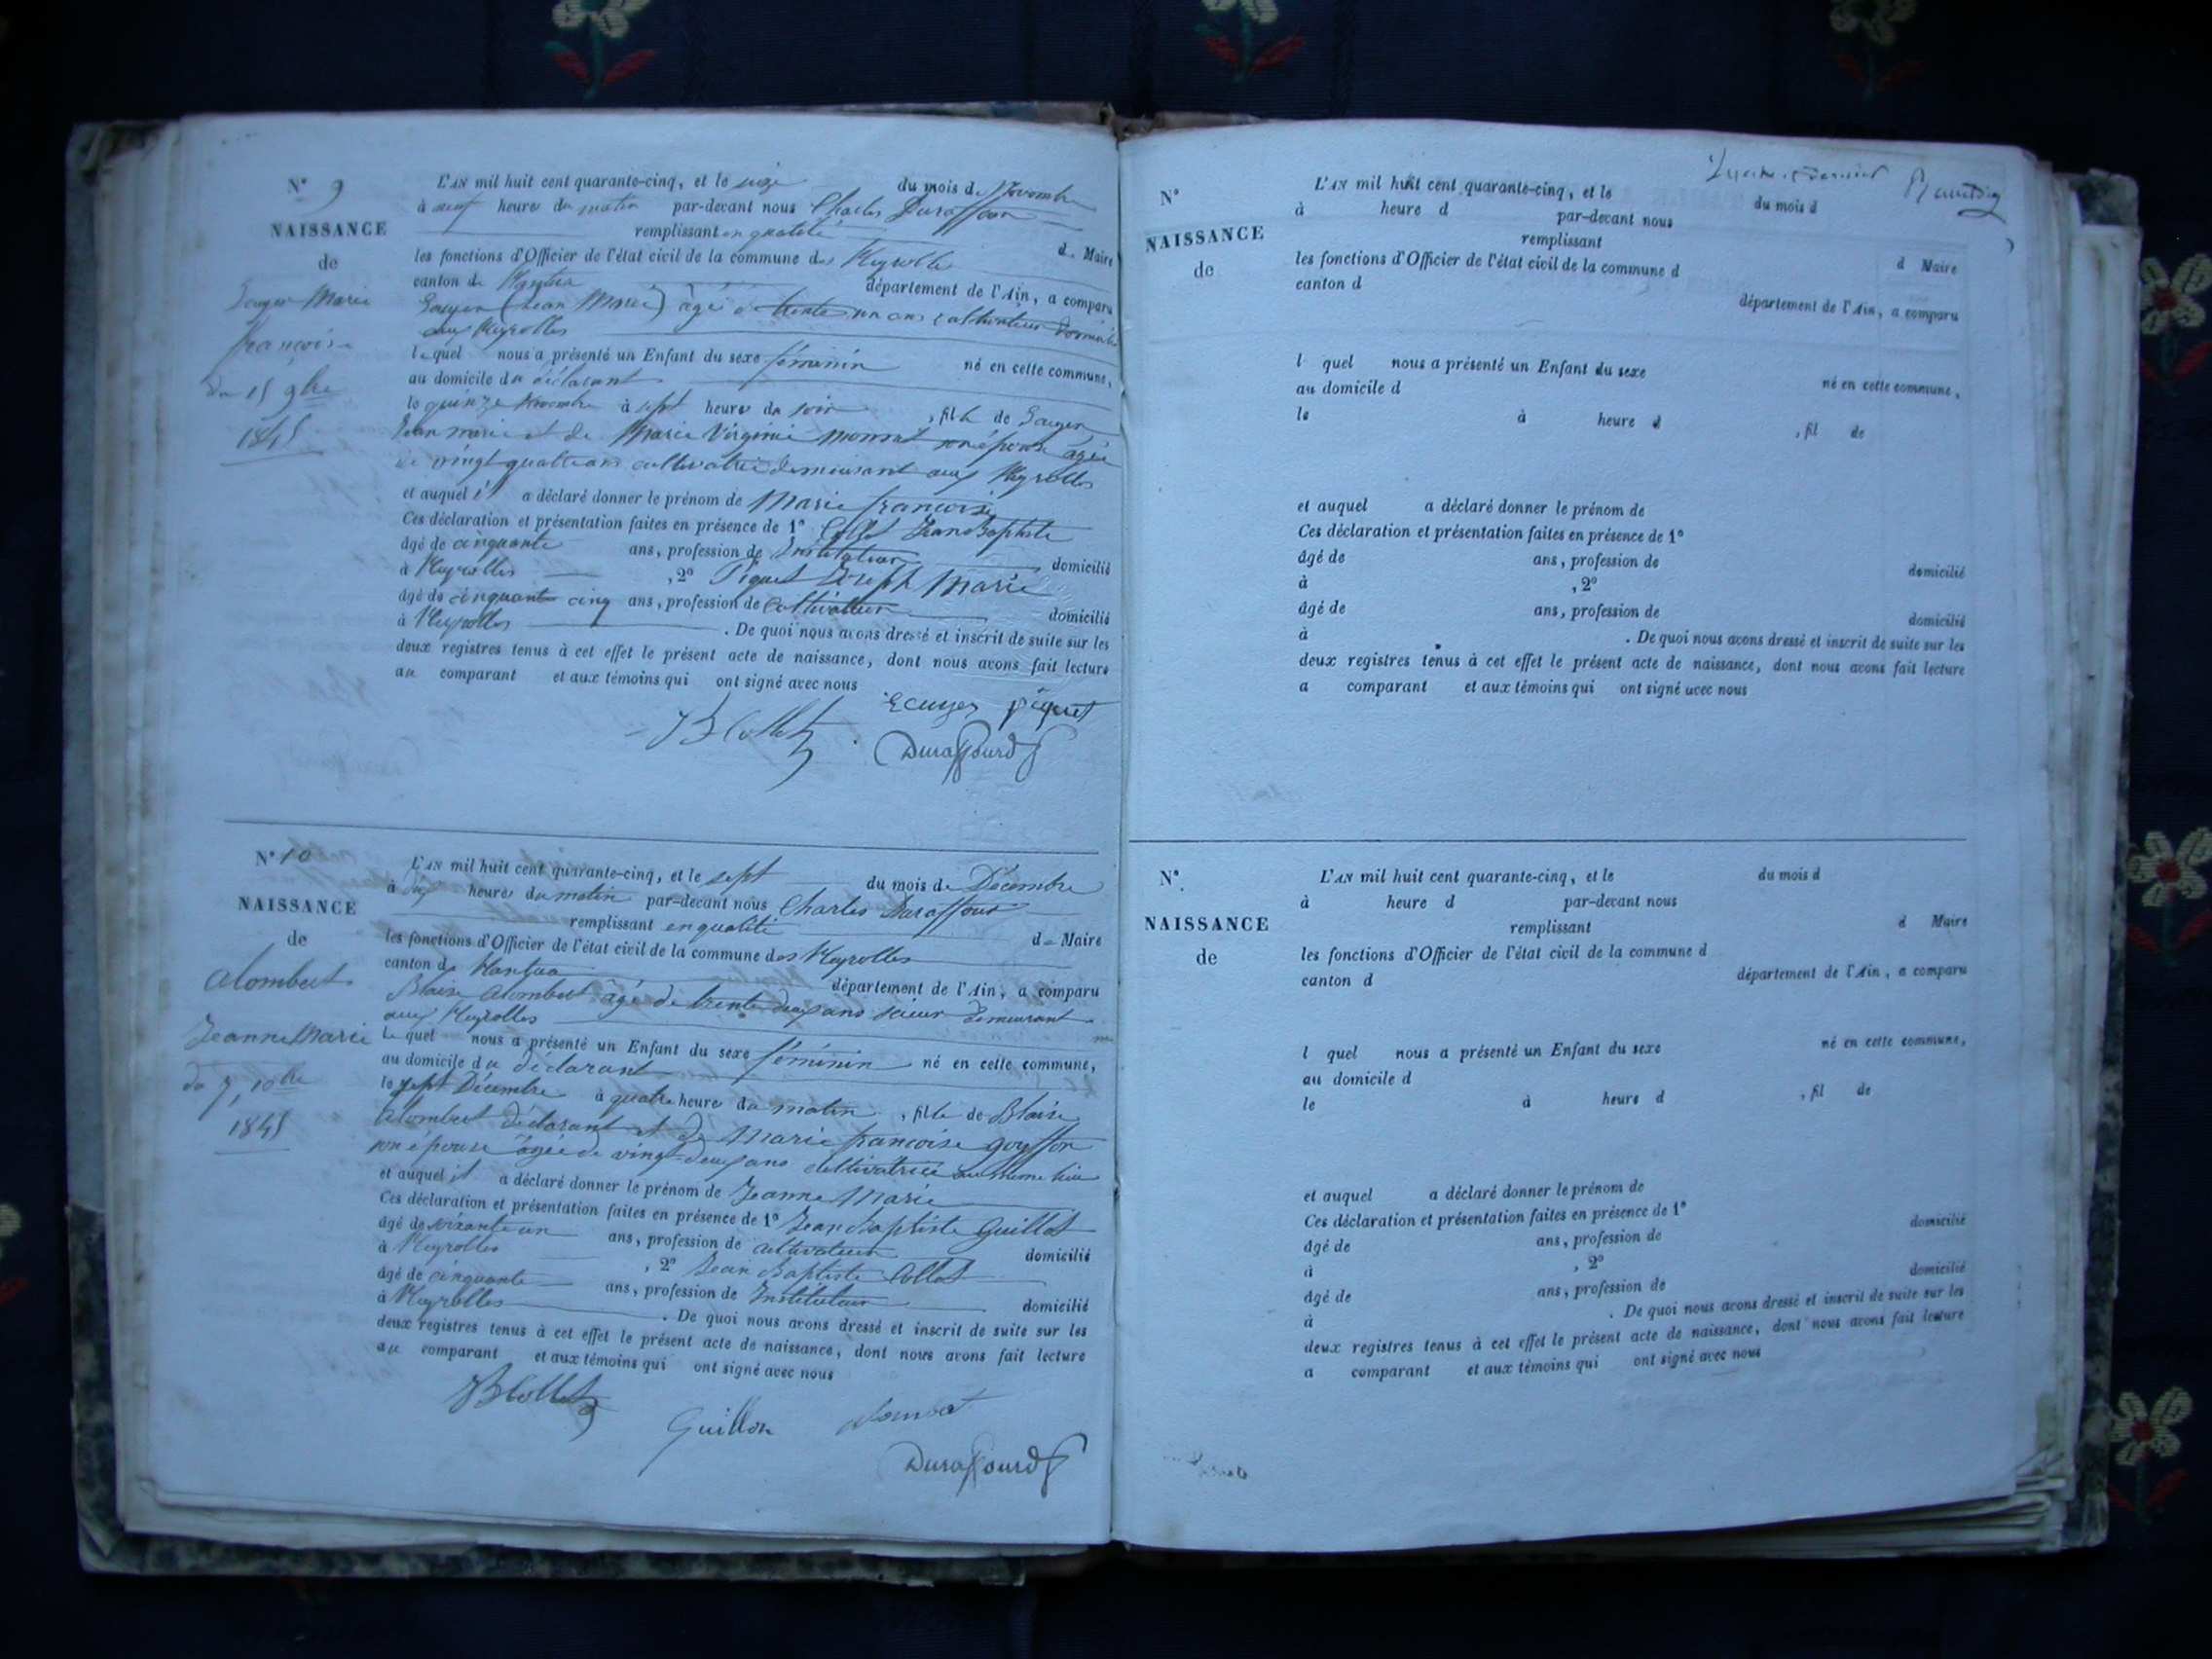 N° 9
NAISSANCE
de
Marie
françoise
du 15 9bre
1845
L'AN mil huit cent quarante-cinq, et le seize du mois de Novembre
à neuf heures du matin par-devant nous Charles Duraffour
remplissant en qualité de Maire
les fonctions d'Officier de l'état civil de la commune des Neyrolles
canton de Nantua département de l'Ain, a comparu
(Jean Marie) âgé de trente un ans cultivateur domicilié
aux Neyrolles
lequel nous a présenté un Enfant du sexe féminin né en cette commune,
au domicile du déclarant
le quinze Novembre à sept heures du soir, fille de
Jean marie et de Marie Virginie son épouse âgée
de vingt quatre ans cultivatrice demeurant aux Neyrolles
et auquel il a déclaré donner le prénom de Marie françoise
Ces déclaration et présentation faites en présence de 1° Collet Jean Baptiste
âgé de cinquante ans, profession de Instituteur domicilié
à Neyrolles, 2° Piquet Joseph Marie
âgé de cinquante cinq ans, profession de Cultivateur domicilié
à Neyrolles. De quoi nous avons dressé et inscrit de suite sur les
deux registres tenus à cet effet le présent acte de naissance, dont nous avons fait lecture
au comparant et aux témoins qui ont signé avec nous
Ecuyer piquet
JB Collet
Duraffourd
N° 10
NAISSANCE
de
Alombert
Jeanne Marie
du 7, 10bre
1845
L'AN mil huit cent quarante-cinq, et le sept du mois de Décembre
à dix heures du matin par-devant nous Charles Duraffour
remplissant en qualité de Maire
les fonctions d'Officier de l'état civil de la commune des Neyrolles
canton de Nantua département de l'Ain, a comparu
Blaise Alombert âgé de trente deux ans scieur demeurant
aux Neyrolles
Lequel nous a présenté un Enfant du sexe féminin né en cette commune,
au domicile du déclarant
le sept Décembre à quatre heures du matin, fille de Blaise
Alombert déclarant et de Marie françoise goyffon
son épouse âgée de vingt-deux ans cultivatrice au même lieu
et auquel il a déclaré donner le prénom de Jeanne Marie
Ces déclaration et présentation faites en présence de 1° Jean Baptiste Guillot
âgé de soixante un ans, profession de cultivateur domicilié
à Neyrolles, 2° Jean Baptiste Collet
âgé de cinquante ans, profession de Instituteur domicilié
à Neyrolles. De quoi nous avons dressé et inscrit de suite sur les
deux registres tenus à cet effet le présent acte de naissance, dont nous avons fait lecture
au comparant et aux témoins qui ont signé avec nous
JB Collet
Guillon
Duraffourd
N°
NAISSANCE
de
L'AN mil huit cent quarante-cinq, et le du mois d
à heure d par-devant nous
remplissant d Maire
les fonctions d'Officier de l'état civil de la commune d
canton d département de l'Ain, a comparu
l quel nous a présenté un Enfant du sexe né en cette commune,
au domicile d
le à heure d, fil de
et auquel a déclaré donner le prénom de
Ces déclaration et présentation faites en présence de 1°
âgé de ans, profession de domicilié
à, 2°
âgé de ans, profession de domicilié
à. De quoi nous avons dressé et inscrit de suite sur les
deux registres tenus à cet effet le présent acte de naissance, dont nous avons fait lecture
a comparant et aux témoins qui ont signé avec nous
N°.
NAISSANCE
de
L'AN mil huit cent quarante-cinq, et le du mois d
à heure d par-devant nous
remplissant d Maire
les fonctions d'Officier de l'état civil de la commune d
canton d département de l'Ain, a comparu
l quel nous a présenté un Enfant du sexe né en cette commune,
au domicile d
le à heure d, fil de
et auquel a déclaré donner le prénom de
Ces déclaration et présentation faites en présence de 1°
âgé de ans, profession de domicilié
à, 2°
âgé de ans, profession de domicilié
à. De quoi nous avons dressé et inscrit de suite sur les
deux registres tenus à cet effet le présent acte de naissance, dont nous avons fait lecture
a comparant et aux témoins qui ont signé avec nous